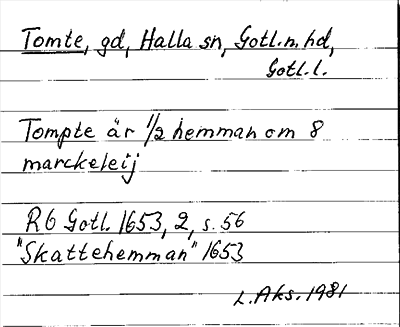 Tomte, gd, Halla sn, Gotl.n.hd,
Gotl.l.
Tompte är 1/2 hemman om 8
marckeleij
Rb Gotl. 1653, 2, s. 56
"Skattehemman" 1653
L. Aks. 1981